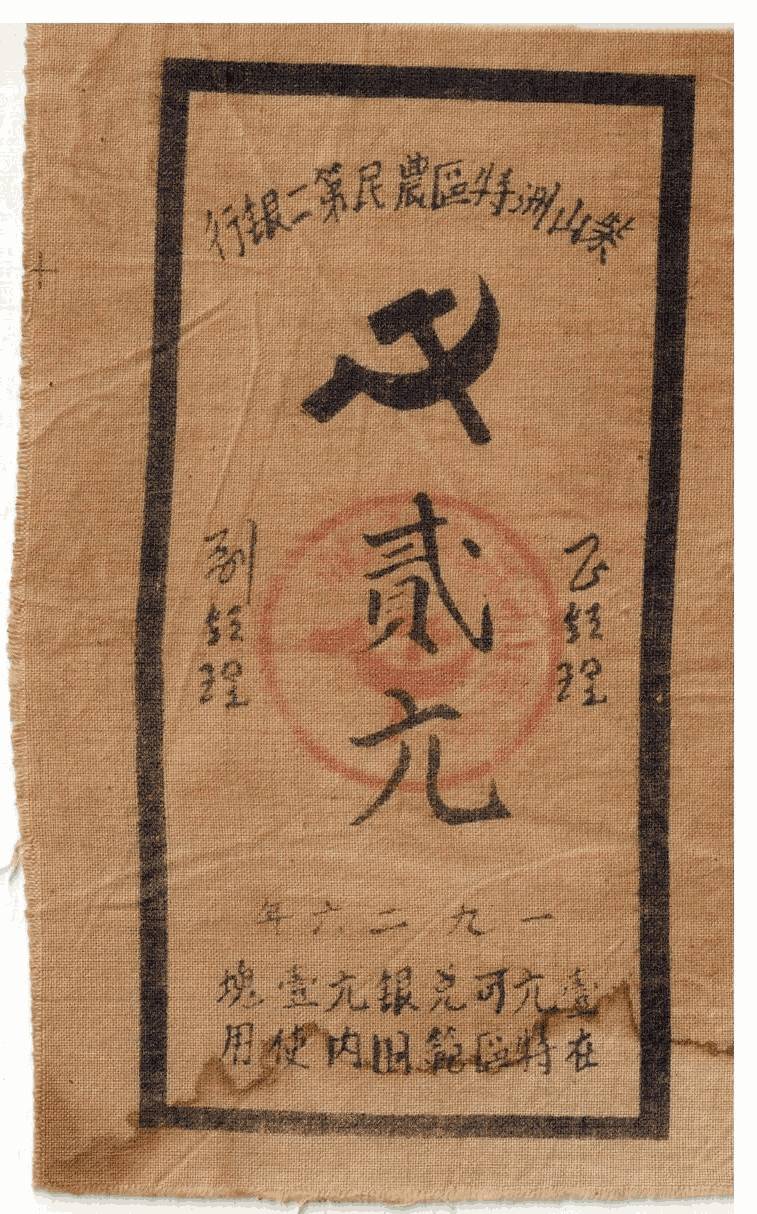 柴山洲特區農民第二銀行
貳元
正经理
副经理
一九二六年
壹元可兑銀元壹塊
在特區範旧内使用